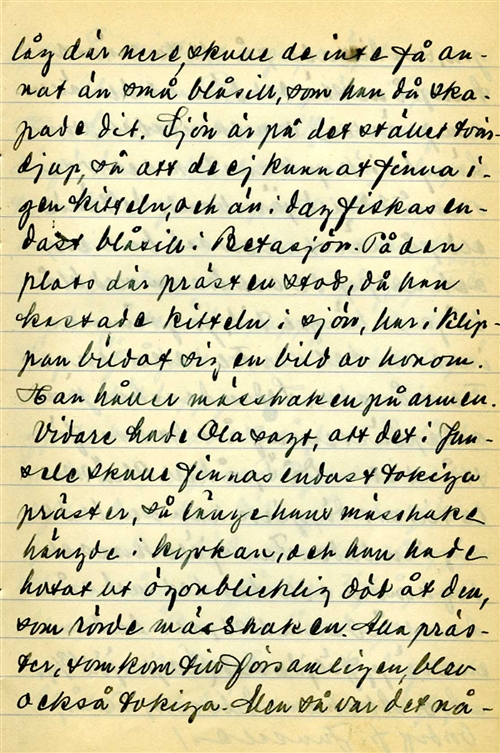 låg där nere, skulle de inte få an-
nat än små blåsill, som han då ska-
pade dit. Sjön är på det stället tvär-
djup, så att de ej kunnat finna i-
gen kitteln, och än i dag fiskas en-
dast blåsill i Betasjön. På den
plats där prästen stod, då han
kastade kitteln i sjön, har i klip-
pan bildat sig en bild av honom.
Han håller mässhaken på armen.
Vidare hade Ola sagt, att det i Jun-
sele skulle finnas endast tokiga
präster, så länge hans mässhake
hängde i kyrkan, och han hade
hotat ut ögonblicklig död åt den,
som rörde mässhaken. Alla präs-
ter, som kom till församlingen, blev
också tokiga. Men så var det nå-